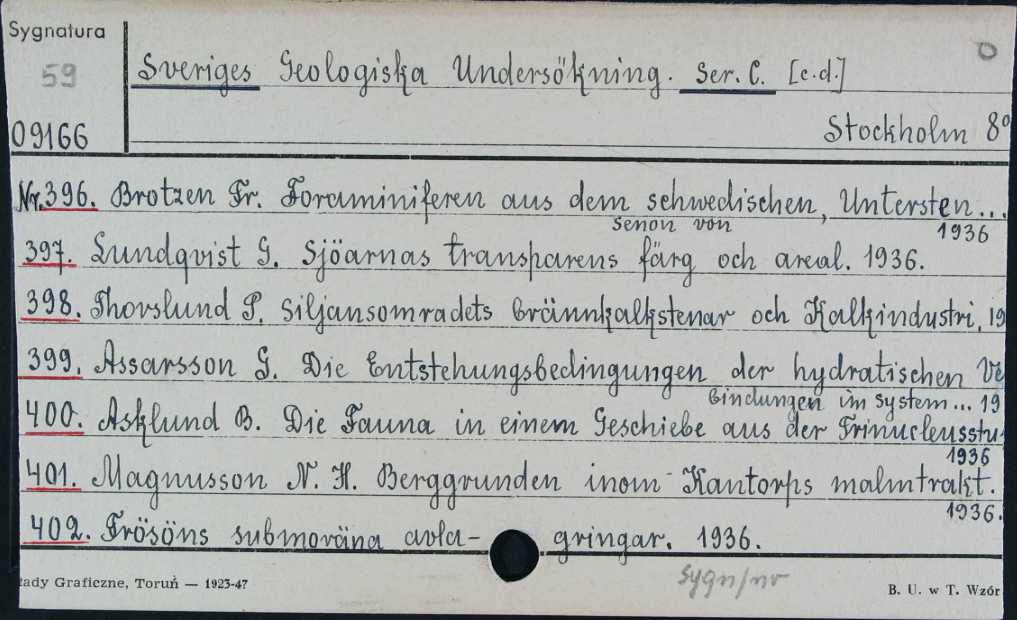 Sygnatura
59
09166
Sveriges Geologiska Undersökning. Ser. C. [c.d.]
0
Stockholm 8º
Nr. 396. Brotzen Fr. Foraminiferen aus dem schwedischen, Untersten...
Senon von 1936
397. Lundqvist G. Sjöarnas transparens färg och areal. 1936.
398. Thorslund P. Siljansomradets brännkalkstenar och Kalkindustri, 19
399. Assarsson G. Die Entstehungsbedingungen der hydratischen Ve
bindungen im System... 19
400. Asklund B. Die Fauna in einem Geschiebe aus der Trinucleusstu
1936
401. Magnusson N. H. Berggrunden inom Kantorps malmtrakt.
1936.
402. Frösöns submoräna avla-gringar. 1936.
sygn/nv
łady Graficzne, Toruń — 1923-47
B. U. w T. Wzór